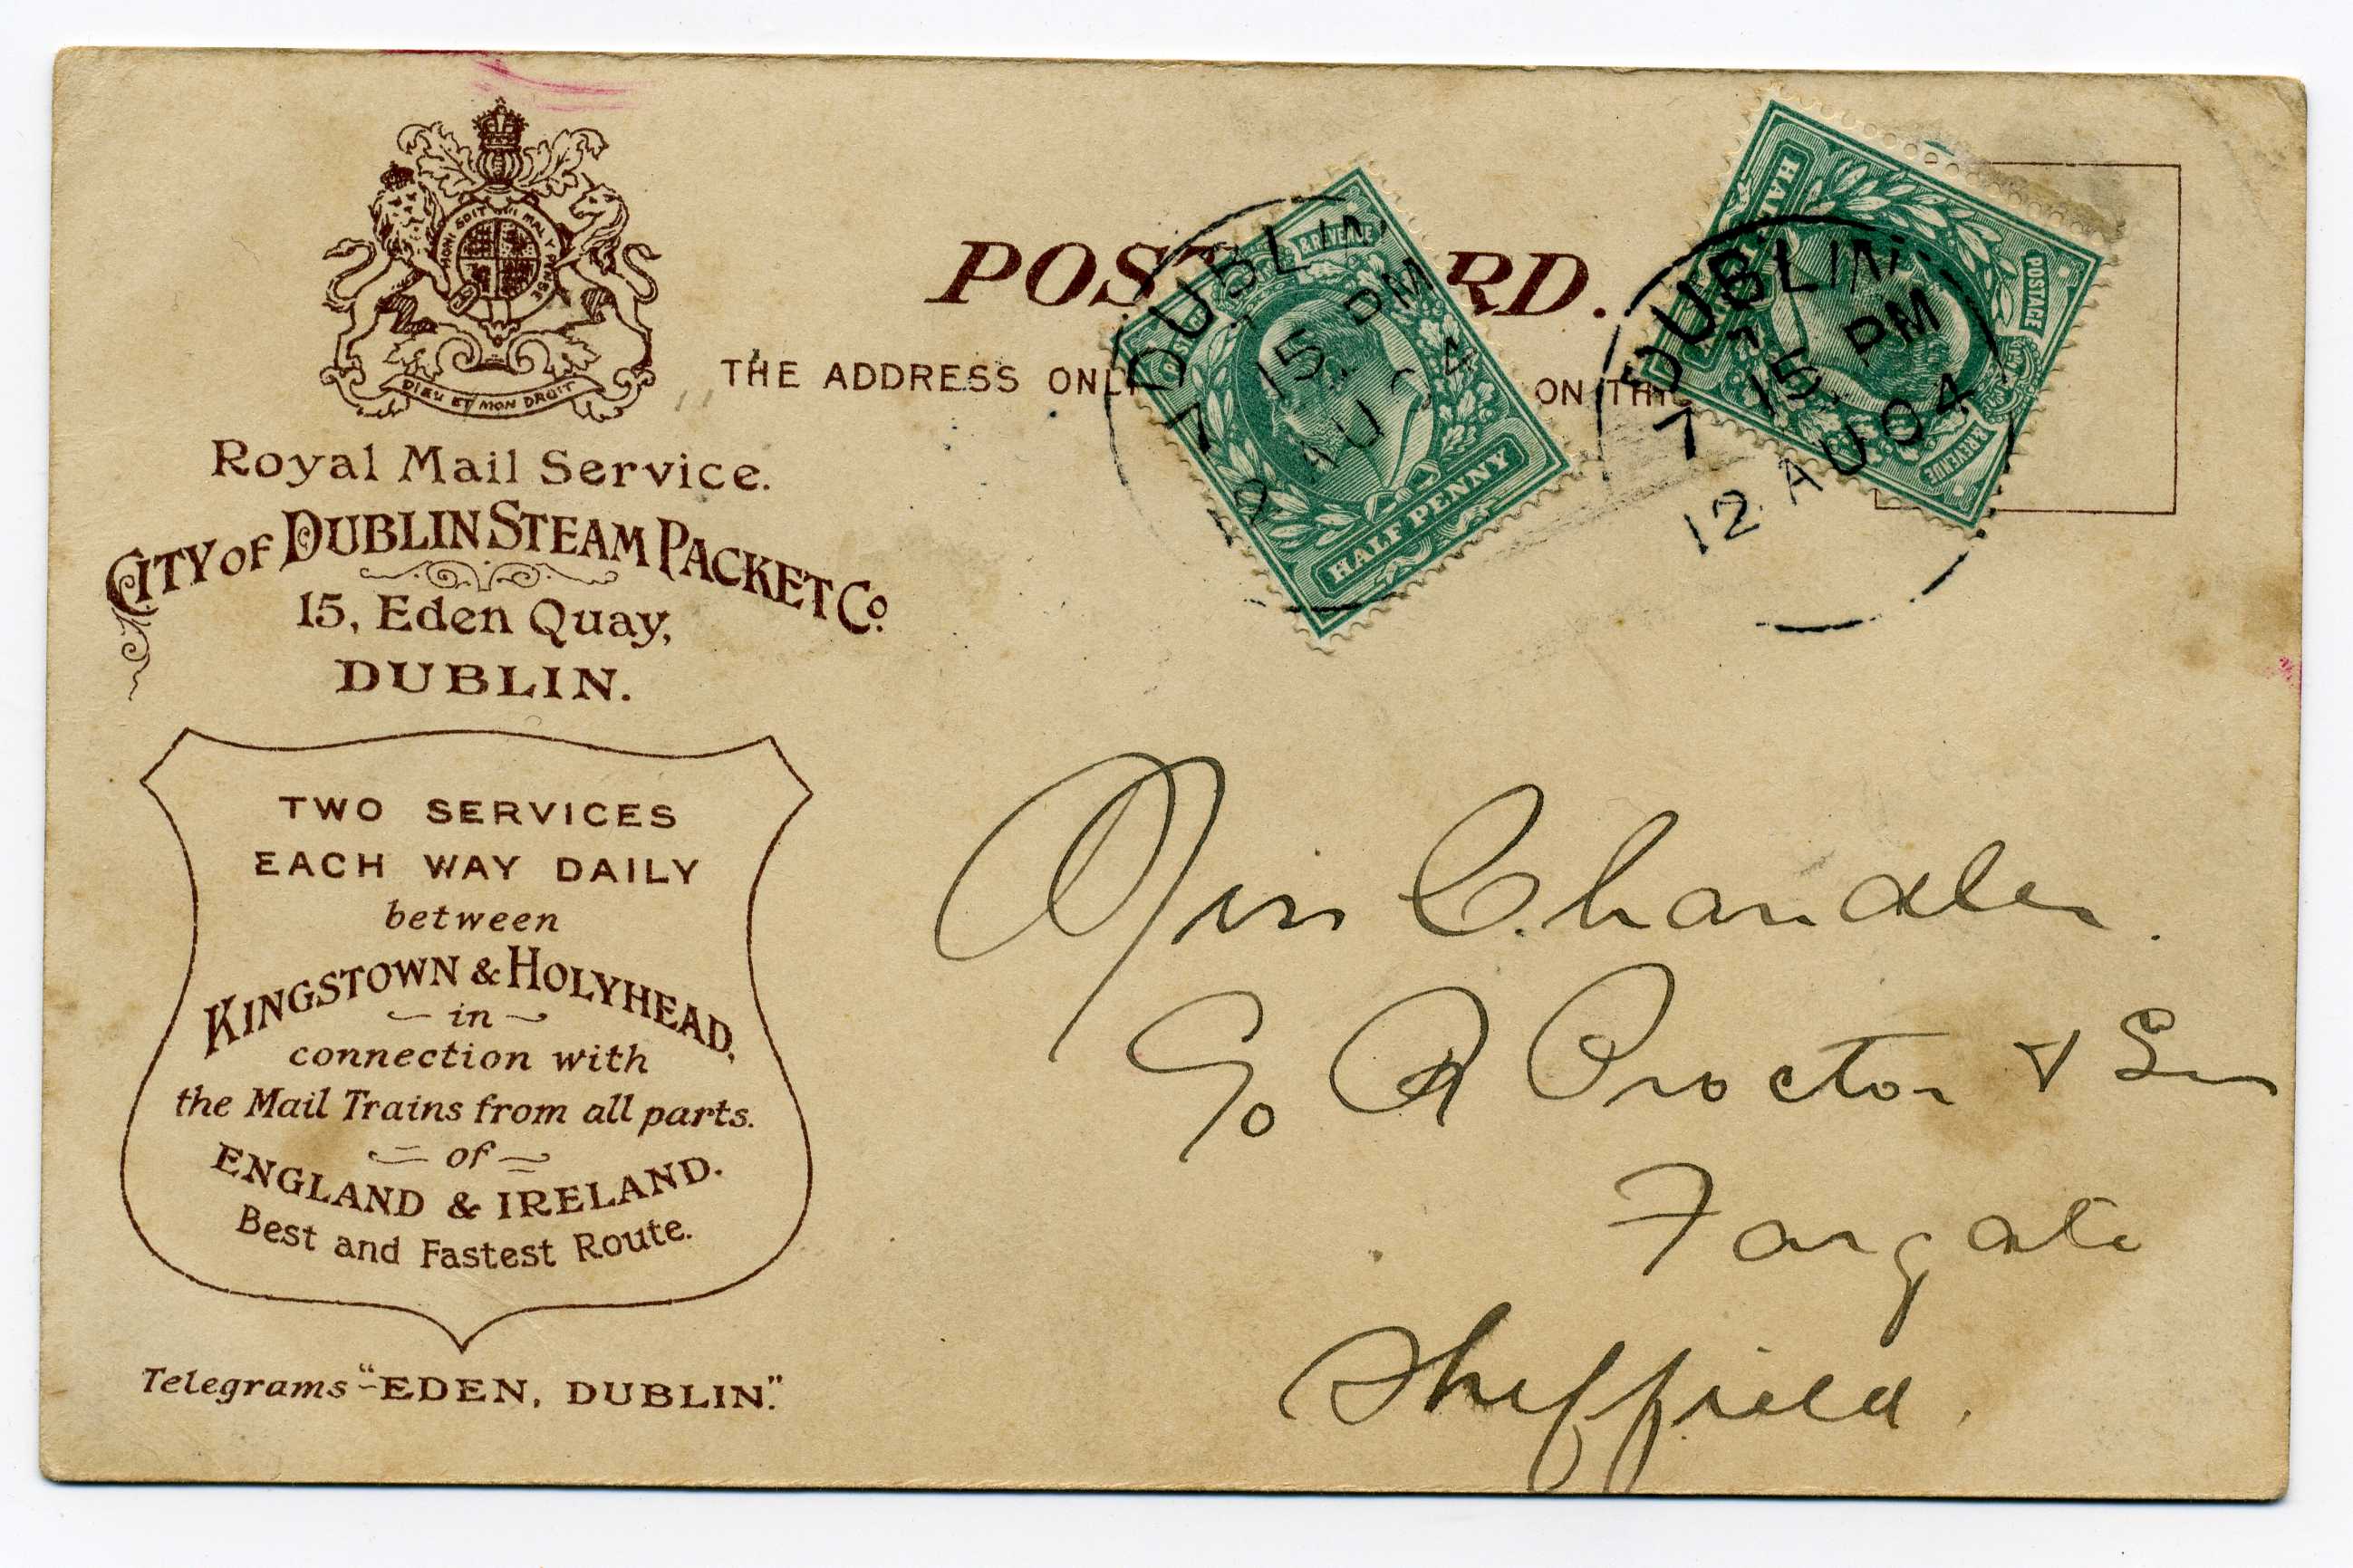 HONI SOIT QUI MAL Y PENSE
DIEU ET MON DROIT
Royal Mail Service.
CITY OF DUBLIN STEAM PACKET Co.
15, Eden Quay,
DUBLIN.
TWO SERVICES
EACH WAY DAILY
between
KINGSTOWN & HOLYHEAD,
in
connection with
the Mail Trains from all parts.
of
ENGLAND & IRELAND.
Best and Fastest Route.
Telegrams "EDEN, DUBLIN."
POST RD.
THE ADDRESS ONLY ON THIS
POSTAGE & REVENUE
HALF PENNY
DUBLIN
7 15 PM
AU 04
HALF
POSTAGE & REVENUE
DUBLIN
7 15 PM
12 AU 04
Miss Chandler.
C/o A Proctor & Son
Fargate
Sheffield.